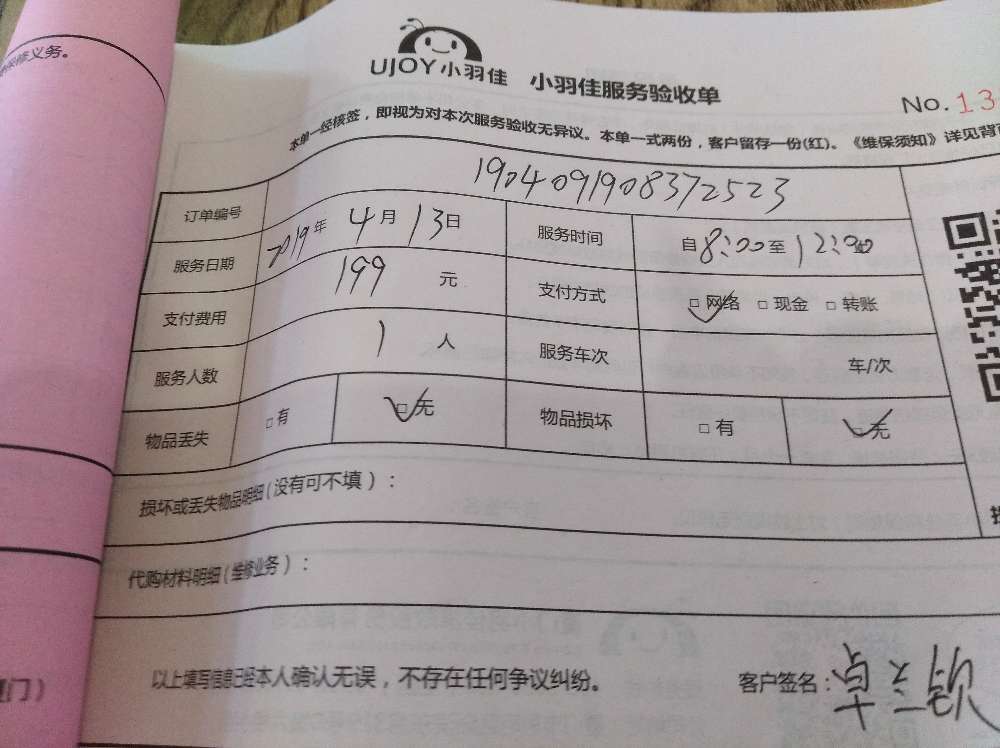 修义务。
UJOY小羽佳 小羽佳服务验收单
No.13
本单一经核签，即视为对本次服务验收无异议。本单一式两份，客户留存一份(红)。《维保须知》详见背
订单编号 1904091908372523
服务日期 2019年4月13日 服务时间 自8:00至12:00
支付费用 199元 支付方式 □网络 □现金 □转账
服务人数 1人 服务车次 车/次
物品丢失 □有 □无 物品损坏 □有 □无
损坏或丢失物品明细(没有可不填)：
代购材料明细(维修业务)：
以上填写信息已经本人确认无误，不存在任何争议纠纷。 客户签名：卓兰
门)